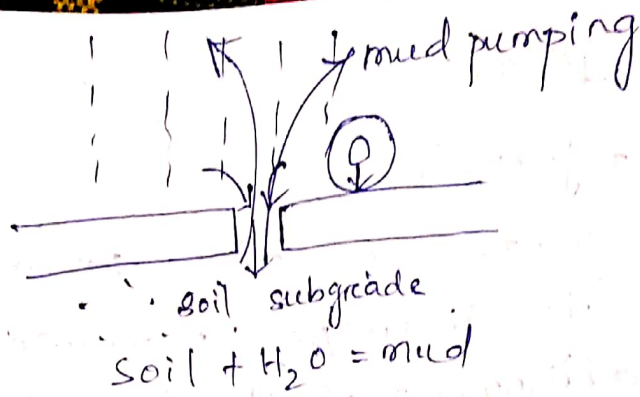 mud pumping
soil subgrade
soil + H₂O = mud